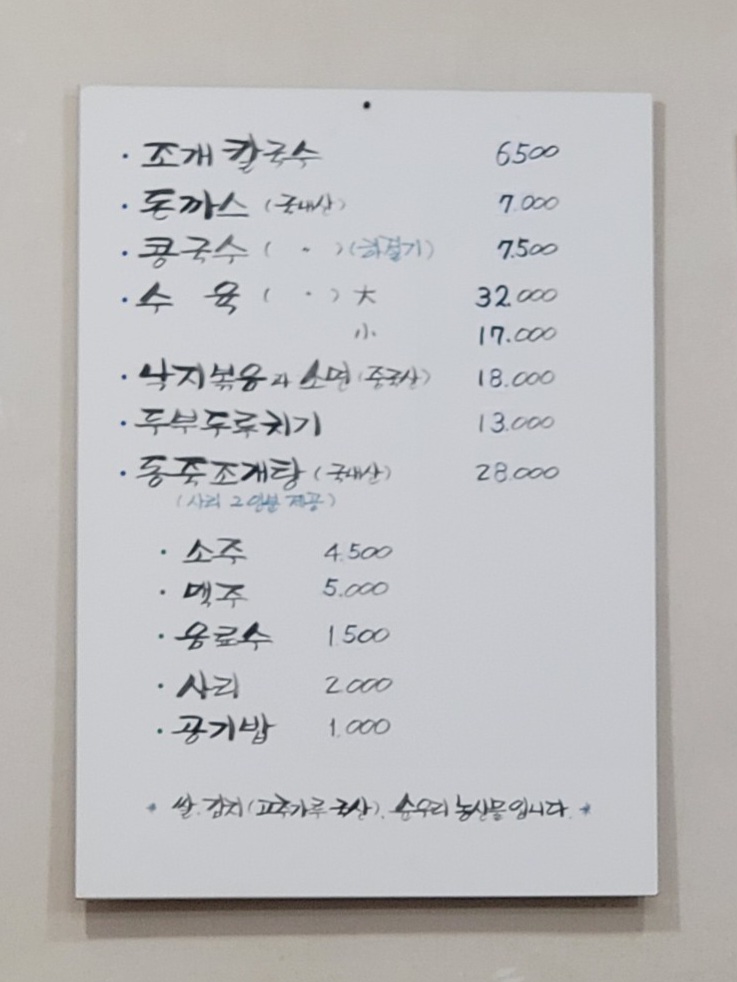 · 조개칼국수 6500
· 돈까스 (국내산) 7.000
· 콩국수 ( 〃 ) (하절기) 7.500
· 수 육 ( 〃 ) 大 32.000
小 17.000
· 낙지볶음과 소면 (중국산) 18.000
· 두부두루치기 13.000
· 동죽조개탕 (국내산) 28.000
(사리 2인분 제공)
· 소주 4.500
· 맥주 5.000
· 음료수 1500
· 사리 2000
· 공기밥 1.000
* 쌀. 김치(고추가루 국산). 순우리 농산물입니다. *